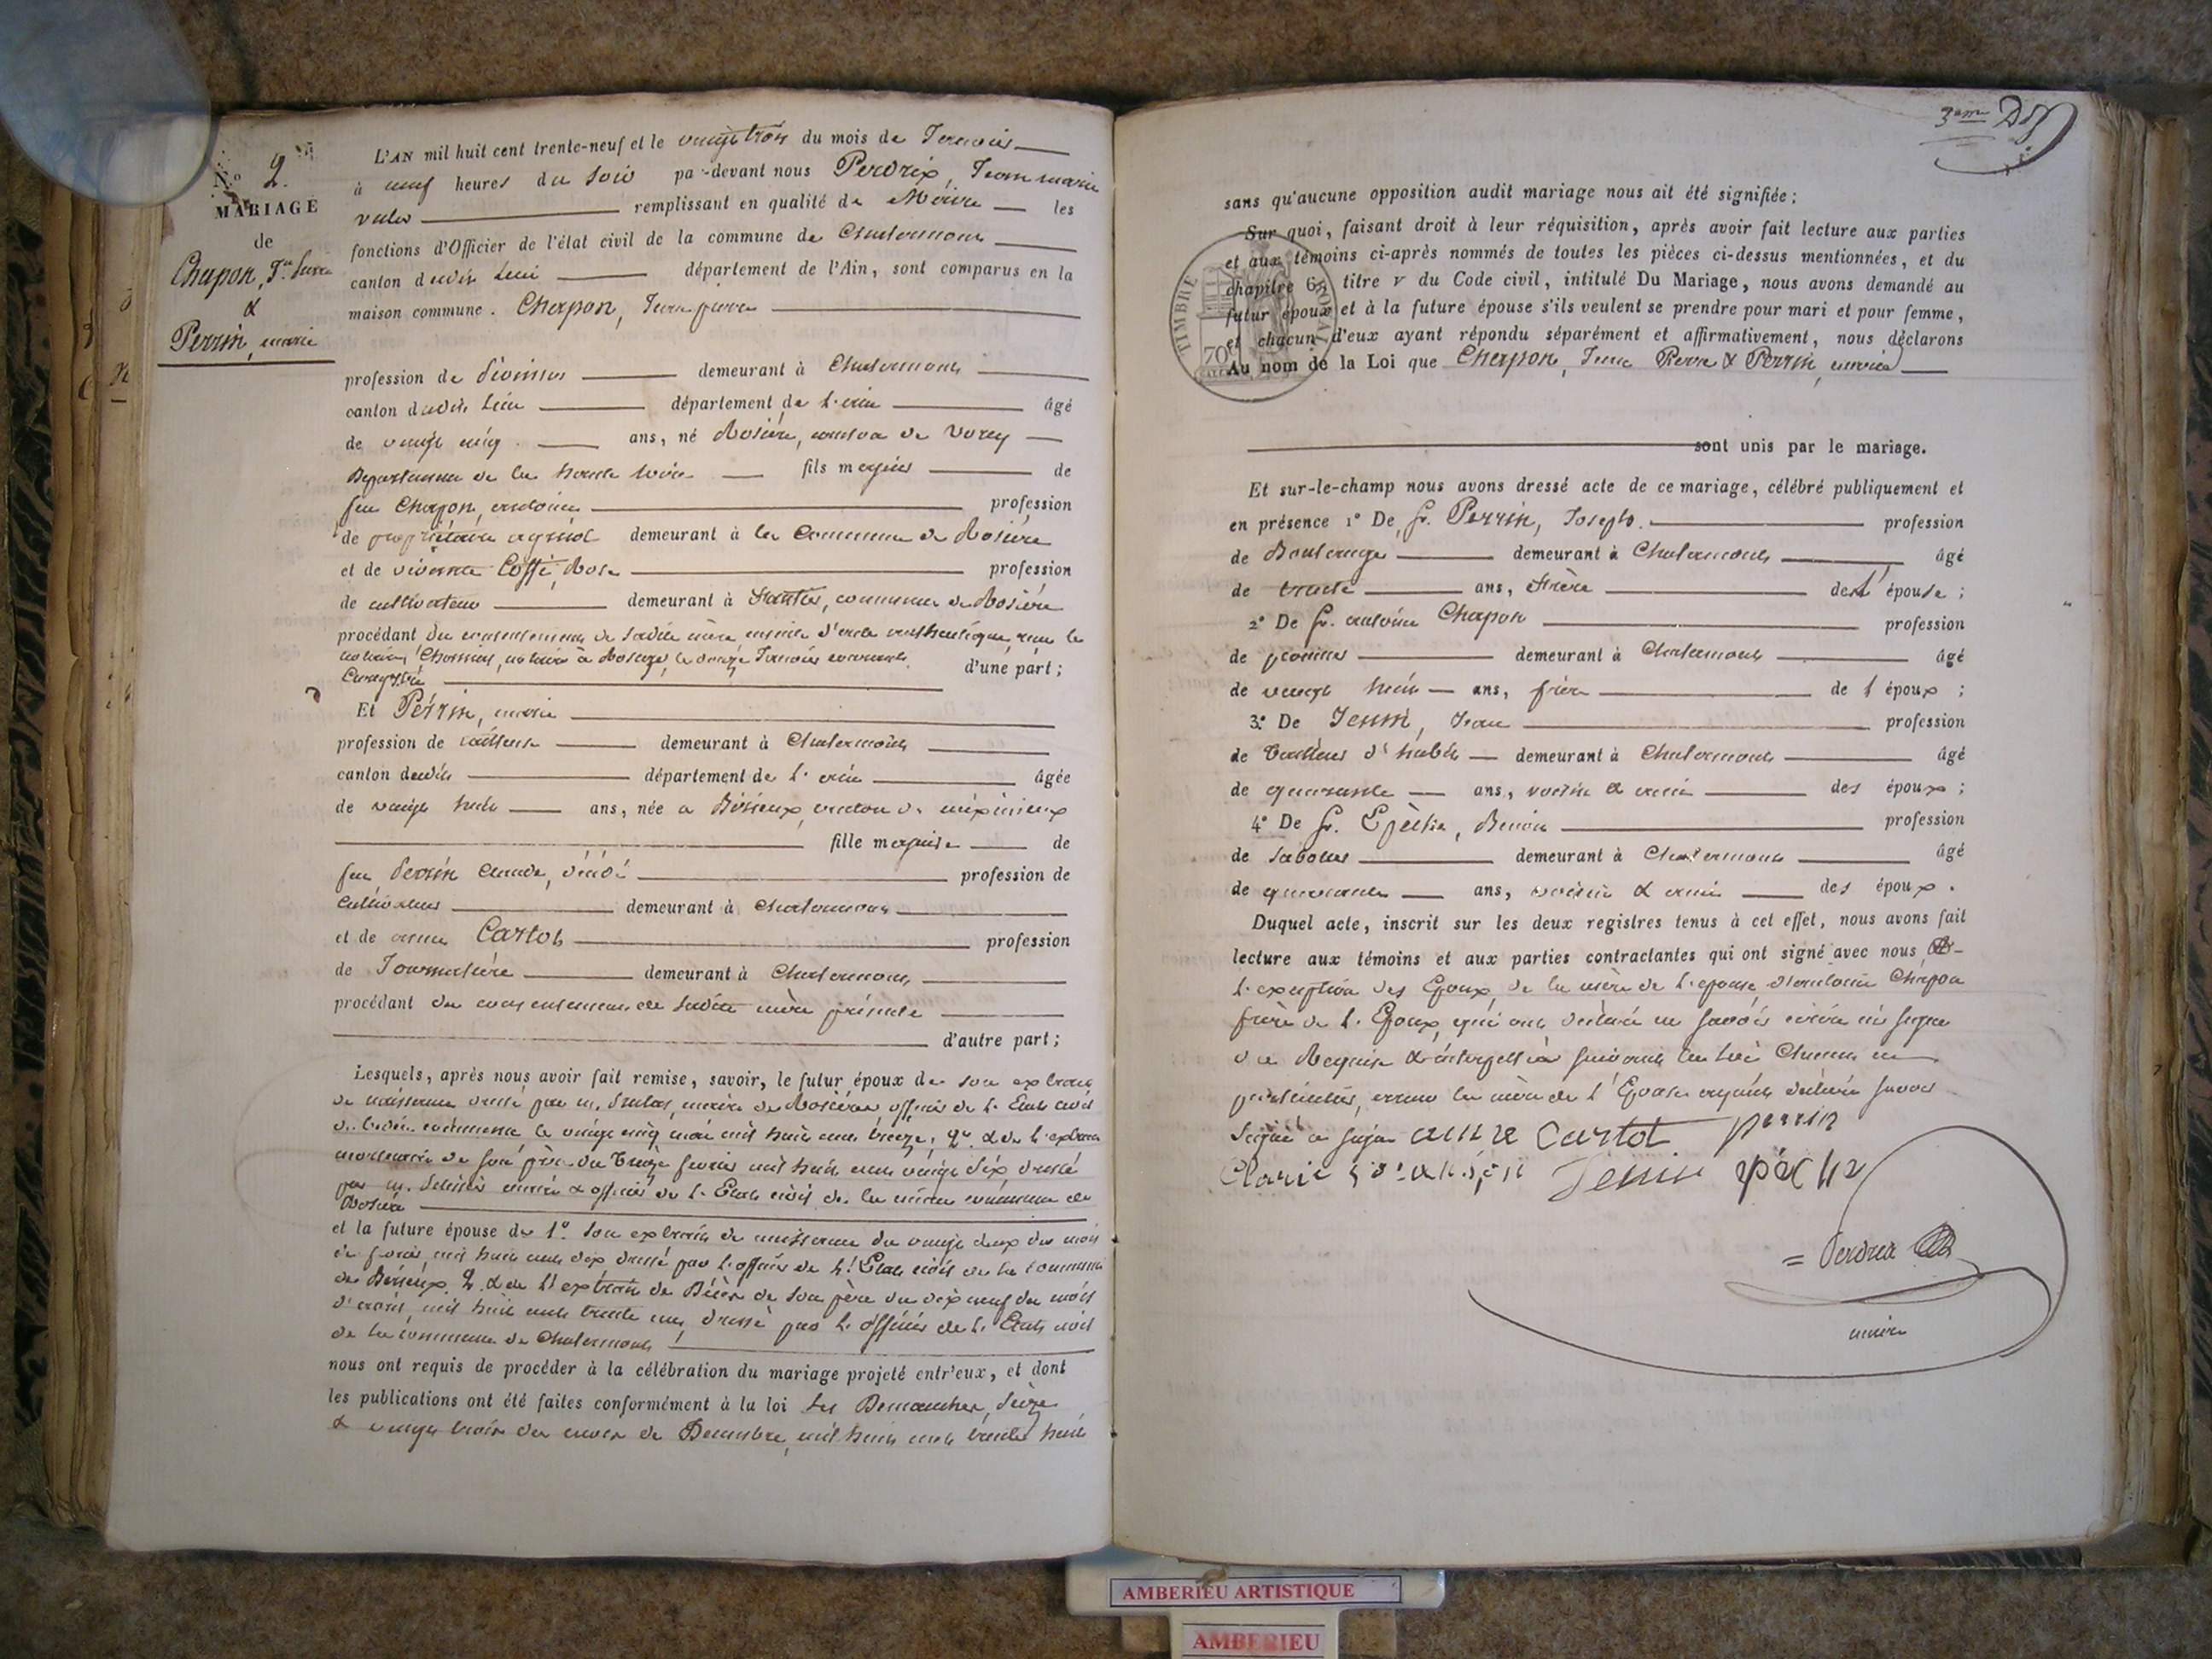 N.° 2.
MARIAGE
de
Chapon, Jn. Pierre
&
Perrin, marie
L'AN mil huit cent trente-neuf et le vingt trois du mois de Janvier
à neuf heures du soir par-devant nous Perdrix, Jean marie
remplissant en qualité de Maire les
fonctions d'Officier de l'état civil de la commune de Chalamont
canton dudit lieu département de l'Ain, sont comparus en la
maison commune. Chapon, Jean pierre
profession de demeurant à Chalamont
canton dudit lieu département de l'ain âgé
de vingt cinq ans, né Rosière, canton de Vorey
Département de la haute loire fils majeur de
feu Chapon, antoine profession
de propriétaire agricole demeurant à la Commune de Rosière
et de vivante Coffi, Rose profession
de cultivateur demeurant à commune de Rosière
procédant du consentement de sadite mère ensuite d'acte authentique, reçu le
notaire à le douze Janvier courant d'une part;
Enregistré
Et Perrin, marie
profession de tailleuse demeurant à Chalamont
canton dudit département de l'ain âgée
de vingt huit ans, née a Birieux, canton de meximieux
fille majeure de
feu Perrin Claude, décédé profession de
Cultivateur demeurant à Chalamont
et de anne Cartot profession
de Journalière demeurant à Chalamont
procédant du consentement de sadite mère présente
d'autre part;
Lesquels, après nous avoir fait remise, savoir, le futur époux de son extrait
de naissance dressé par m. maire de Rosières officier de l'Etat civil
de ladite commune le vingt cinq mai mil huit cent treize, 2° & de l'extrait
mortuaire de son père du treize fevrier mil huit cent vingt dix dressé
par m. maire & officier de l'Etat civil de la même commune de
Rosière
et la future épouse de 1° son extrait de naissance du vingt deux du mois
de mil huit cent dix dressé par l'officier de l'Etat civil de la commune
de Birieux 2° & de l'extrait de Décès de son père du dix neuf du mois
d'avril mil huit cent trente un, dressé par l'officier de l'Etat civil
de la commune de Chalamont
nous ont requis de procéder à la célébration du mariage projeté entr'eux, et dont
les publications ont été faites conformément à la loi les Dimanches, Seize
& vingt trois du mois de Decembre, mil huit cent trente huit
3eme
sans qu'aucune opposition audit mariage nous ait été signifiée;
Sur quoi, faisant droit à leur réquisition, après avoir fait lecture aux parties
et aux témoins ci-après nommés de toutes les pièces ci-dessus mentionnées, et du
chapitre 6, titre v du Code civil, intitulé Du Mariage, nous avons demandé au
futur époux et à la future épouse s'ils veulent se prendre pour mari et pour femme,
et chacun d'eux ayant répondu séparément et affirmativement, nous déclarons
Au nom de la Loi que Chapon, Jean Pierre & Perrin, marie
TIMBRE ROYAL
70c
sont unis par le mariage.
Et sur-le-champ nous avons dressé acte de ce mariage, célébré publiquement et
en présence 1° De Sr. Perrin, Joseph. profession
de Boulanger demeurant à Chalamont âgé
de trente ans, frère de l'épouse;
2° De Sr. antoine Chapon profession
de demeurant à Chalamont âgé
de vingt huit ans, frère de l'époux;
3.° De Jenin, Jean profession
de Tailleur d'habits demeurant à Chalamont âgé
de quarante ans, voisin & ami des époux;
4° De Sr. Benoit profession
de sabotier demeurant à Chalamont âgé
de quarante ans, voisin & ami des époux.
Duquel acte, inscrit sur les deux registres tenus à cet effet, nous avons fait
lecture aux témoins et aux parties contractantes qui ont signé avec nous
l'exception des Epoux, de la mère de l'epouse, d'antoine Chapon
frère de l'Epoux, qui ont déclaré ne savoir écrire ni signer
de ce Requis & interpellés suivant la loi Chacun en
particulier, la mère de l'Epouse ayant déclaré savoir
signé a signé anne Cartot perrin
Jenin
= Perdrix
maire
AMBERIEU ARTISTIQUE
AMBERIEU